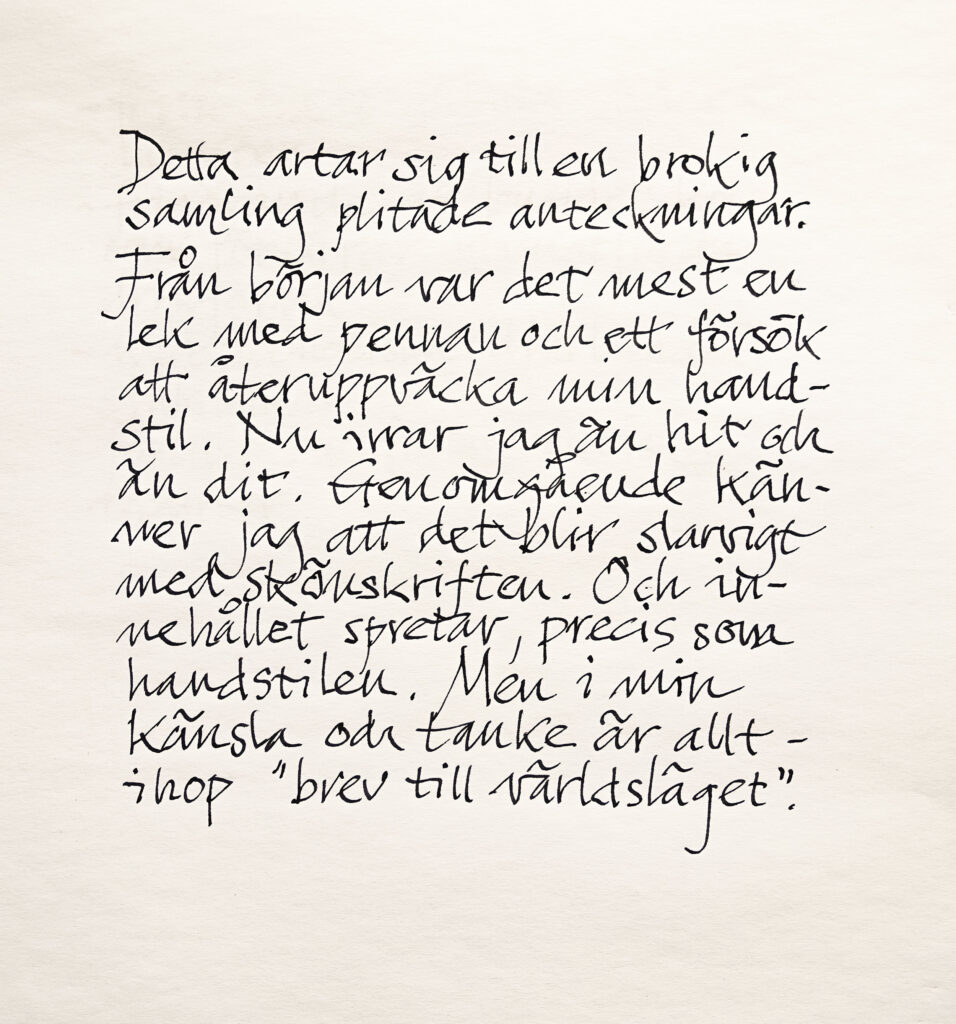 Detta artar sig till en brokig
samling plitade anteckningar.
Från början var det mest en
lek med pennan och ett försök
att återuppväcka min hand-
stil. Nu irrar jag än hit och
än dit. Genomgående kän-
ner jag att det blir slarvigt
med skönskriften. Och in-
nehållet spretar, precis som
handstilen. Men i min
känsla och tanke är allt-
ihop "brev till världsläget".